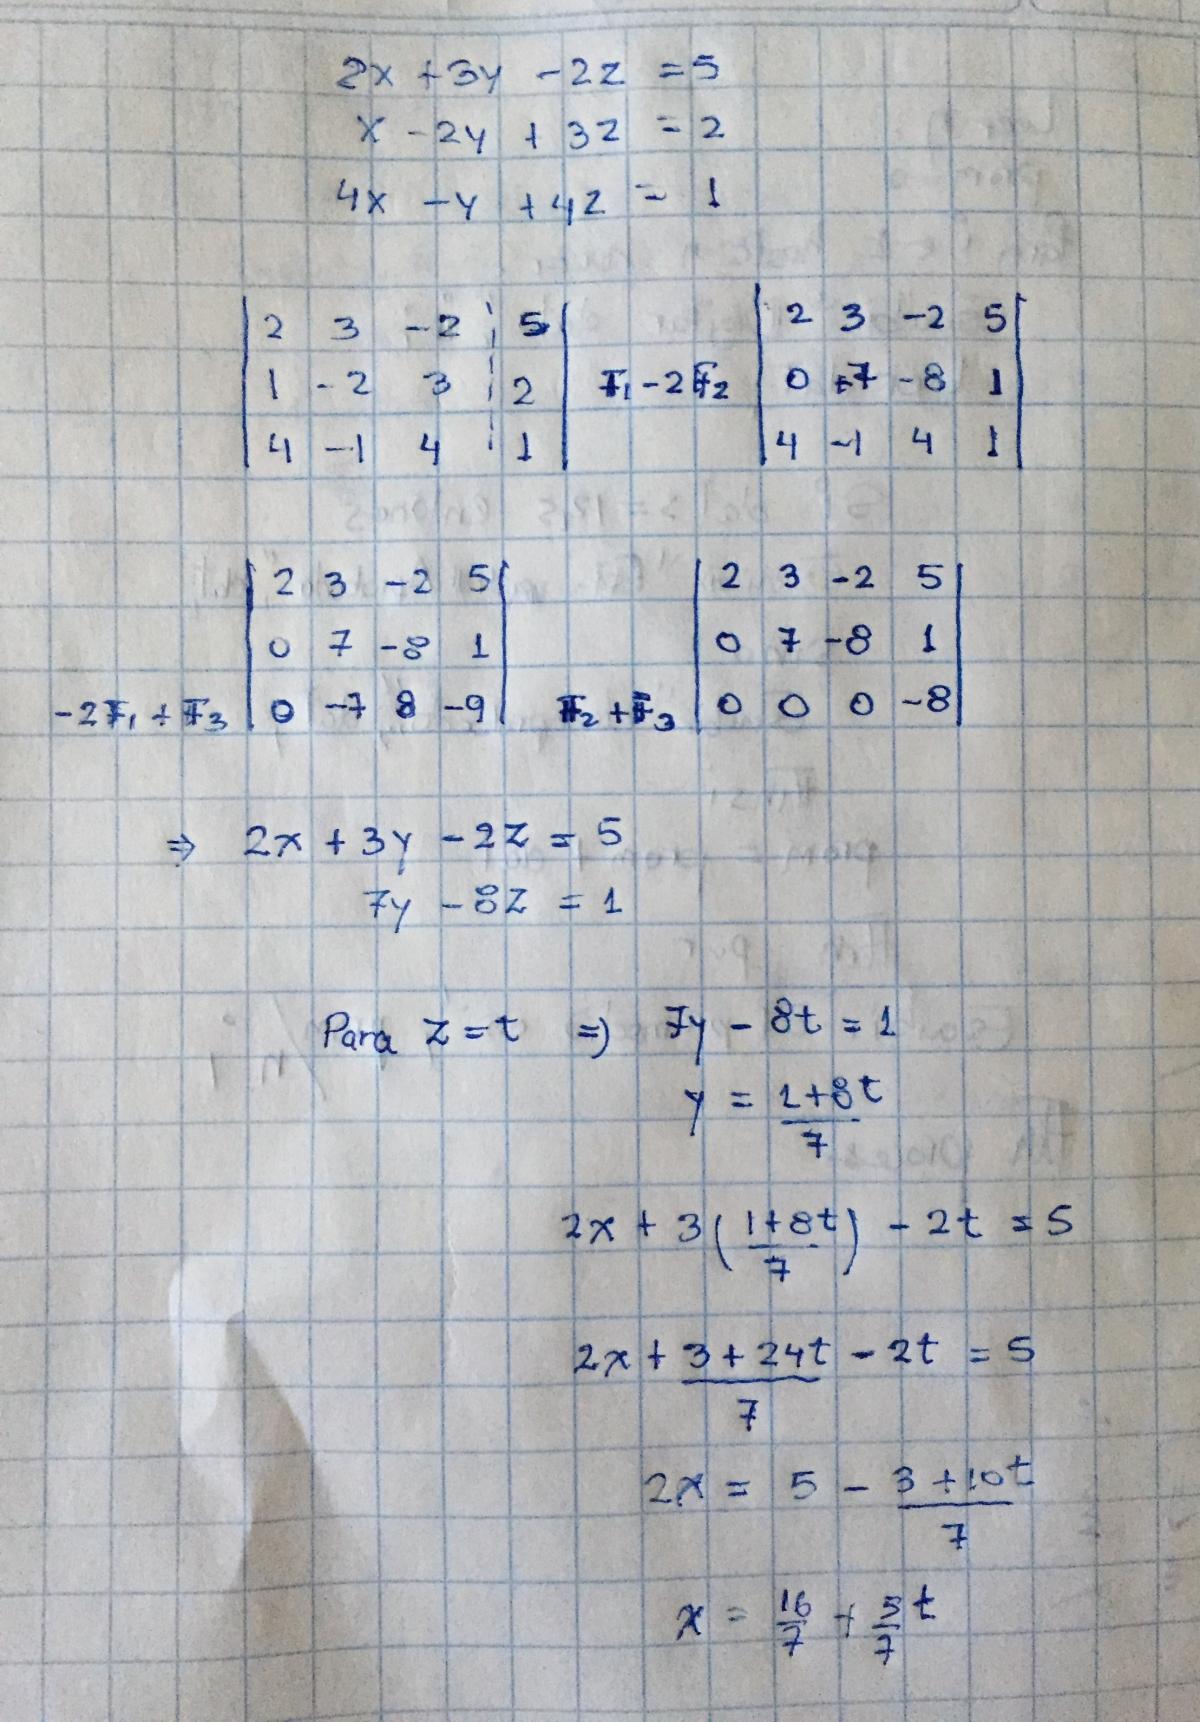 2x + 3y - 2z = 5
x - 2y + 3z = 2
4x - y + 4z = 1
| 2 3 -2 ¦ 5 | F₁ - 2F₂ | 2 3 -2 5 |
| 1 -2 3 ¦ 2 | | 0 +7 -8 1 |
| 4 -1 4 ¦ 1 | | 4 -1 4 1 |
| 2 3 -2 5 | | 2 3 -2 5 |
| 0 7 -8 1 | | 0 7 -8 1 |
-2F₁ + F₃ | 0 -7 8 -9 | F₂ + F₃ | 0 0 0 -8 |
⇒ 2x + 3y - 2z = 5
7y - 8z = 1
Para z = t ⇒ 7y - 8t = 1
y = (1 + 8t)/7
2x + 3((1 + 8t)/7) - 2t = 5
2x + (3 + 24t)/7 - 2t = 5
2x = 5 - (3 + 10t)/7
x = 16/7 + 5/7 t